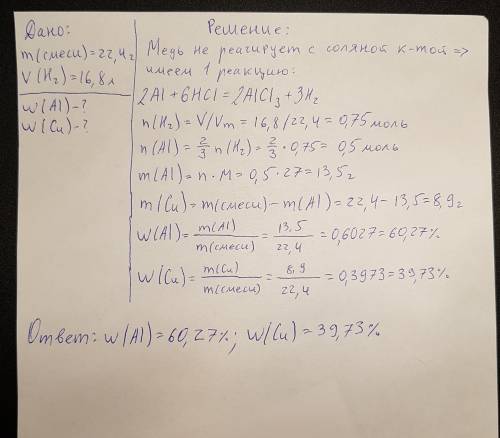 Дано:
m(смеси)=22,4г
V(H₂)=16,8л
w(Al)-?
w(Cu)-?
Решение:
Медь не реагирует с соляной к-той =>
имеем 1 реакцию:
2Al+6HCl=2AlCl₃+3H₂
n(H₂)=V/Vm=16,8/22,4=0,75моль
n(Al)=2/3 n(H₂)=2/3·0,75=0,5моль
m(Al)=n·M=0,5·27=13,5г
m(Cu)=m(смеси)-m(Al)=22,4-13,5=8,9г
w(Al)=m(Al)/m(смеси)=13,5/22,4=0,6027=60,27%
w(Cu)=m(Cu)/m(смеси)=8,9/22,4=0,3973=39,73%
Ответ: w(Al)=60,27%; w(Cu)=39,73%